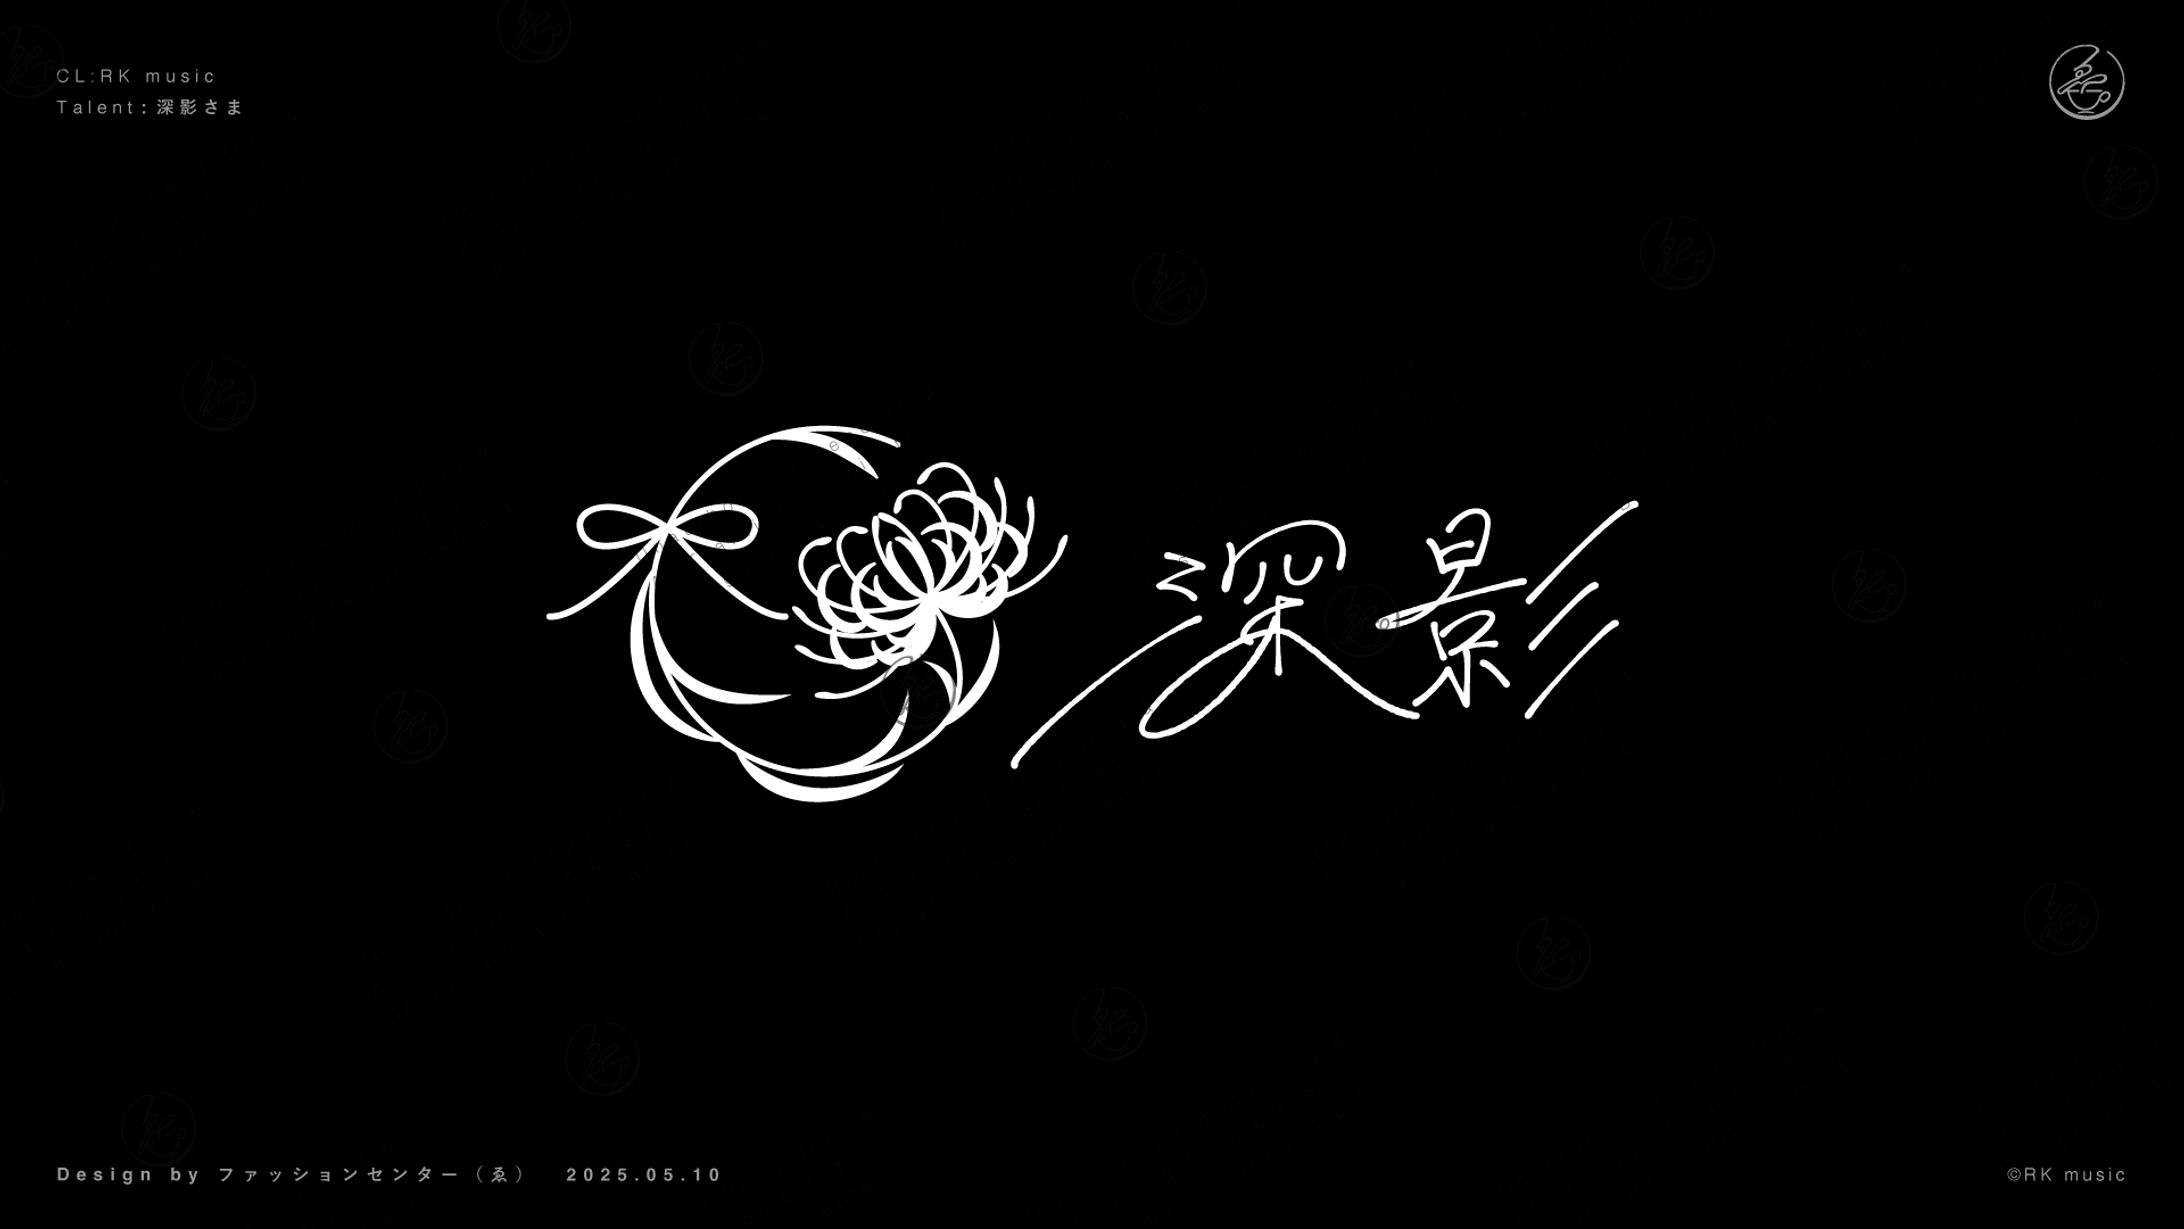 CL:RK music
Talent:深影さま
深影
Design by ファッションセンター（ゑ） 2025.05.10
©RK music